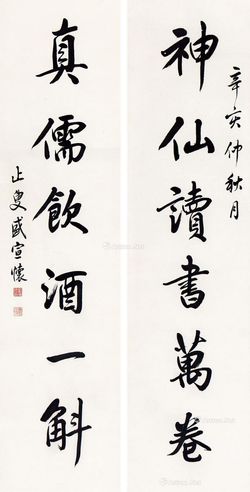 辛亥仲秋月
神仙讀書萬卷
真儒飲酒一斛
止叟盛宣懷